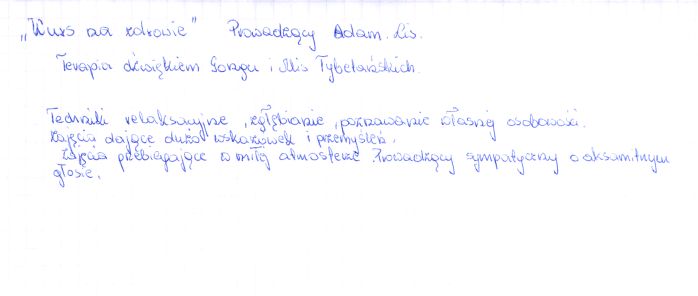 „Kurs na zdrowie" Prowadzący Adam. Lis.
Terapia dźwiękiem Gongu i Mis Tybetańskich.
Techniki relaksacyjne, zgłębianie, poznawanie własnej osobowości.
Zajęcia dające dużo wskazówek i przemyśleń.
Zajęcia przebiegające w miłej atmosferze. Prowadzący sympatyczny o aksamitnym
głosie.